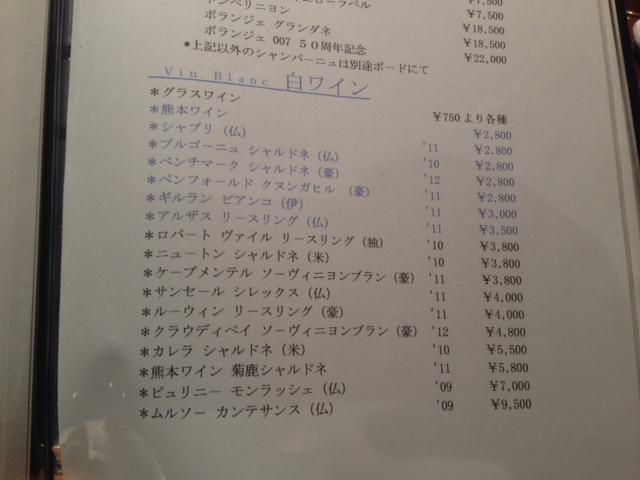 ローラベル ¥7,500
ドンペリニヨン ¥18,500
ボランジェ グランダネ ¥18,500
ボランジェ 007 50周年記念 ¥22,000
*上記以外のシャンパーニュは別途ボードにて
Vin Blanc 白ワイン
*グラスワイン ¥750より各種
*熊本ワイン ¥2,800
*シャブリ (仏) '11 ¥2,800
*ブルゴーニュ シャルドネ (仏) '10 ¥2,800
*ベンチマーク シャルドネ (豪) '12 ¥2,800
*ペンフォールド クヌンガヒル (豪) '11 ¥2,800
*ギルラン ビアンコ (伊) '11 ¥3,000
*アルザス リースリング (仏) '11 ¥3,500
*ロバート ヴァイル リースリング (独) '10 ¥3,800
*ニュートン シャルドネ (米) '10 ¥3,800
*ケープメンテル ソーヴィニヨンブラン (豪) '11 ¥3,800
*サンセール シレックス (仏) '11 ¥4,000
*ルーウィン リースリング (豪) '11 ¥4,000
*クラウディベイ ソーヴィニヨンブラン (豪) '12 ¥4,800
*カレラ シャルドネ (米) '10 ¥5,500
*熊本ワイン 菊鹿シャルドネ '11 ¥5,800
*ピュリニー モンラッシェ (仏) '09 ¥7,000
*ムルソー カンテサンス (仏) '09 ¥9,500